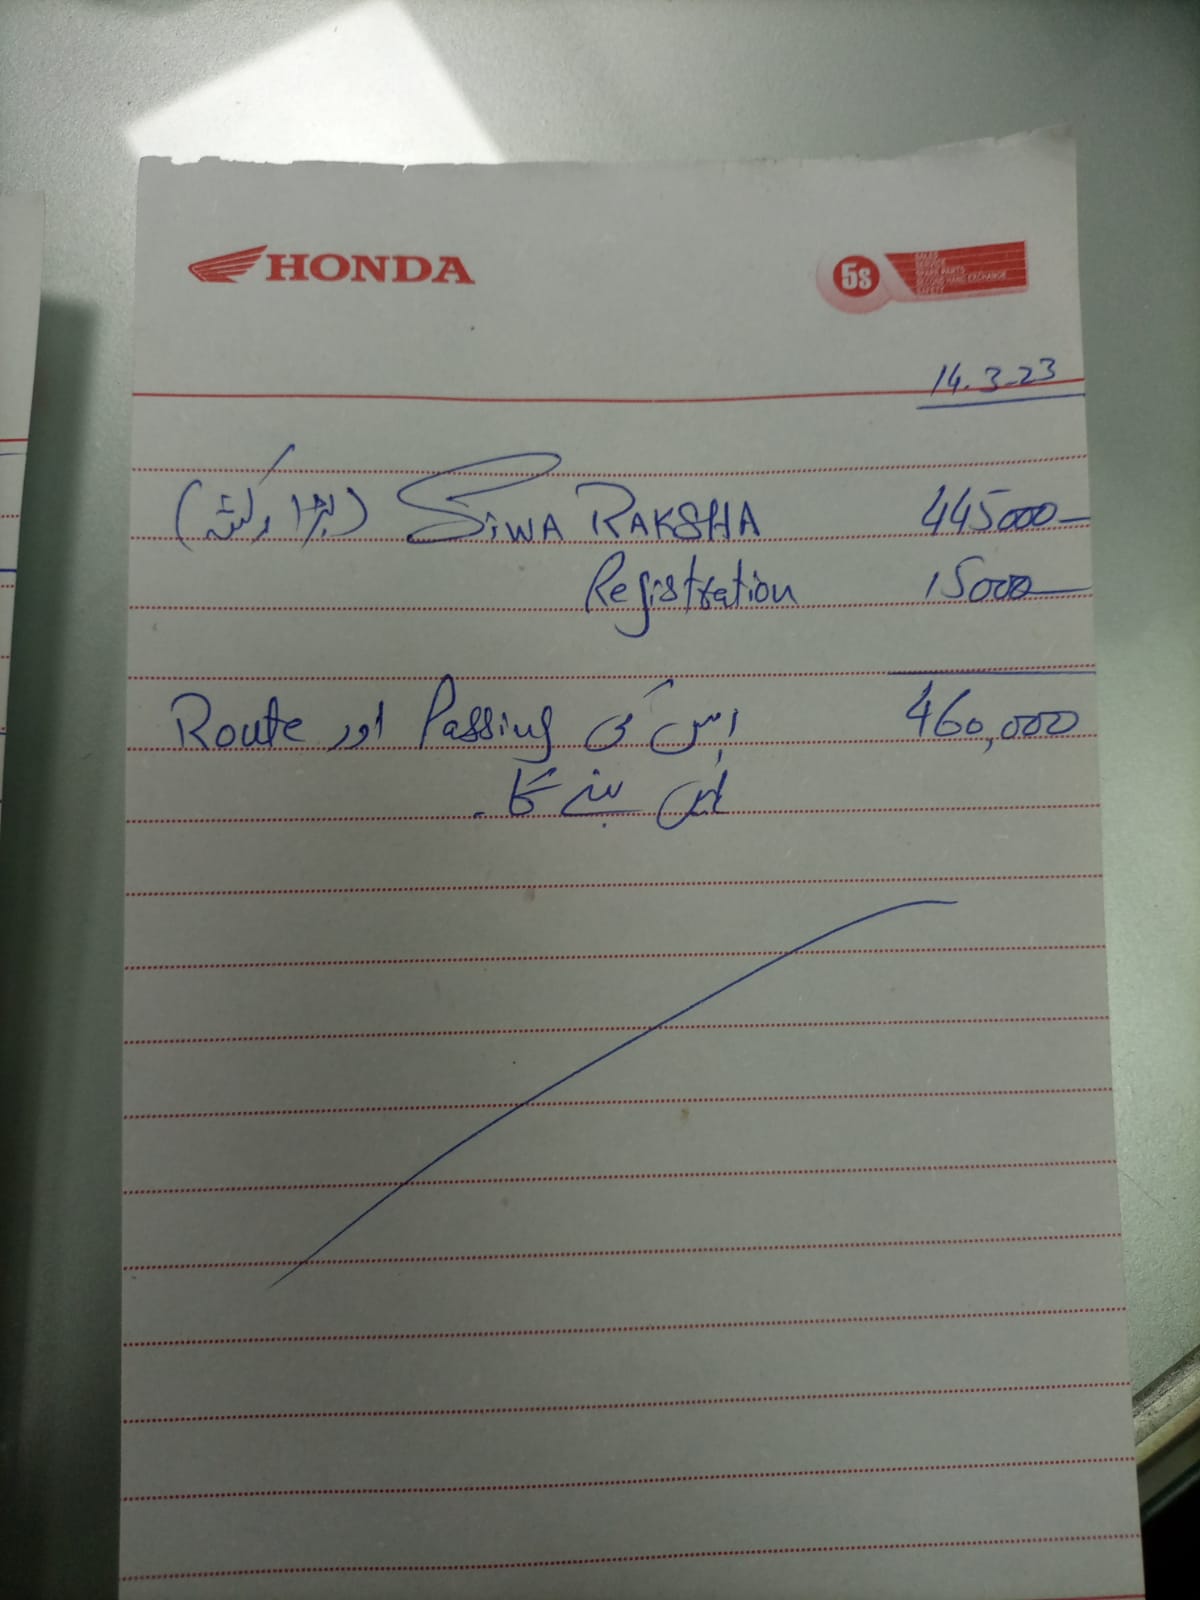 HONDA
5s
SALES
SERVICE
SPARE PARTS
SECOND HAND EXCHANGE
SAFETY
14.3-23
(بڑا رکشہ) SiWA RAKSHA 445000
Registration 15000
460,000
اس کی Passing اور Route
بنے گا۔